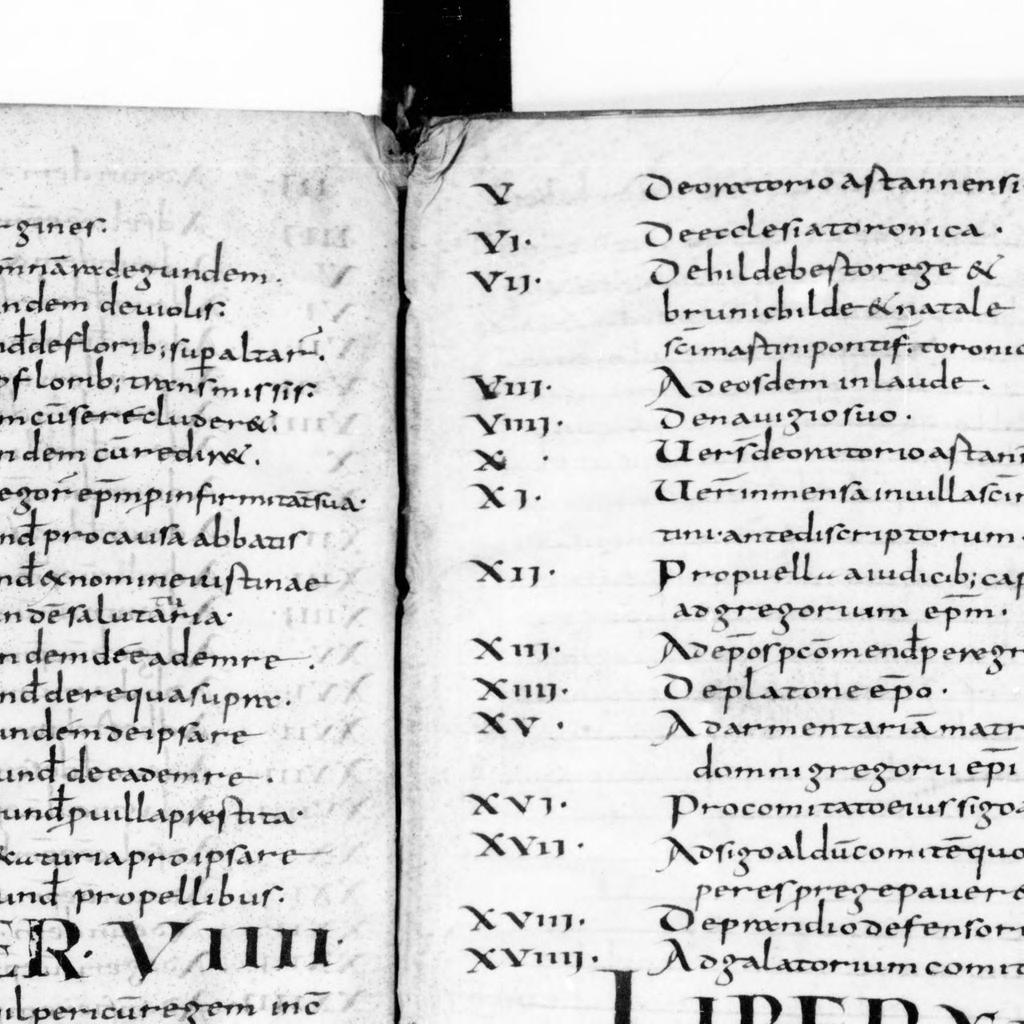 gines.
ndem deuiolis:
ndđdeflorib; sup altar̄.
floriƀ; transmissis:
ndem cūredire&.
egor̄ ep̄m p̱ infirmitat̄ sua·
nđ procausa abbatis
nđ exnomineiustinae
ndē salutaria·
ndemdeeademre.
nđ derequasupra·
undemdeipsare
unđ deeademre·
unđ p̱uillapraestita·
proipsare
unđ propellibus.
ER· VIIII·
ilpericūregem inc̄
V Deoratorio astannensi
VI· Deecclesiatoronica·
VII· Dehildebestorege &
brunichilde&natale
sc̄imastinipontif̄. toronic
VIII· Adeosdem inlaude.
VIIII· Denauigiosuo·
X · Uers̄deoratorio astan
XI· Uer̄inmensa inuillascīn
tini·antediscriptorum·
XII· Propuell aiudicib; cap
adgregorium ep̄m·
XIII· Adep̄ospcōmenđp̱eregr
XIIII· Deplatone ep̄o·
XV · Adarmentariā matr
domnigregorii ep̄i
XVI· Procomitatoeiussigoa
XVII· Adsigoaldūcomitē quo
peresp̱regepauer
XVIII· Depraēndiodefensori
XVIIII· Adgalatoriumcomit
LIBER X